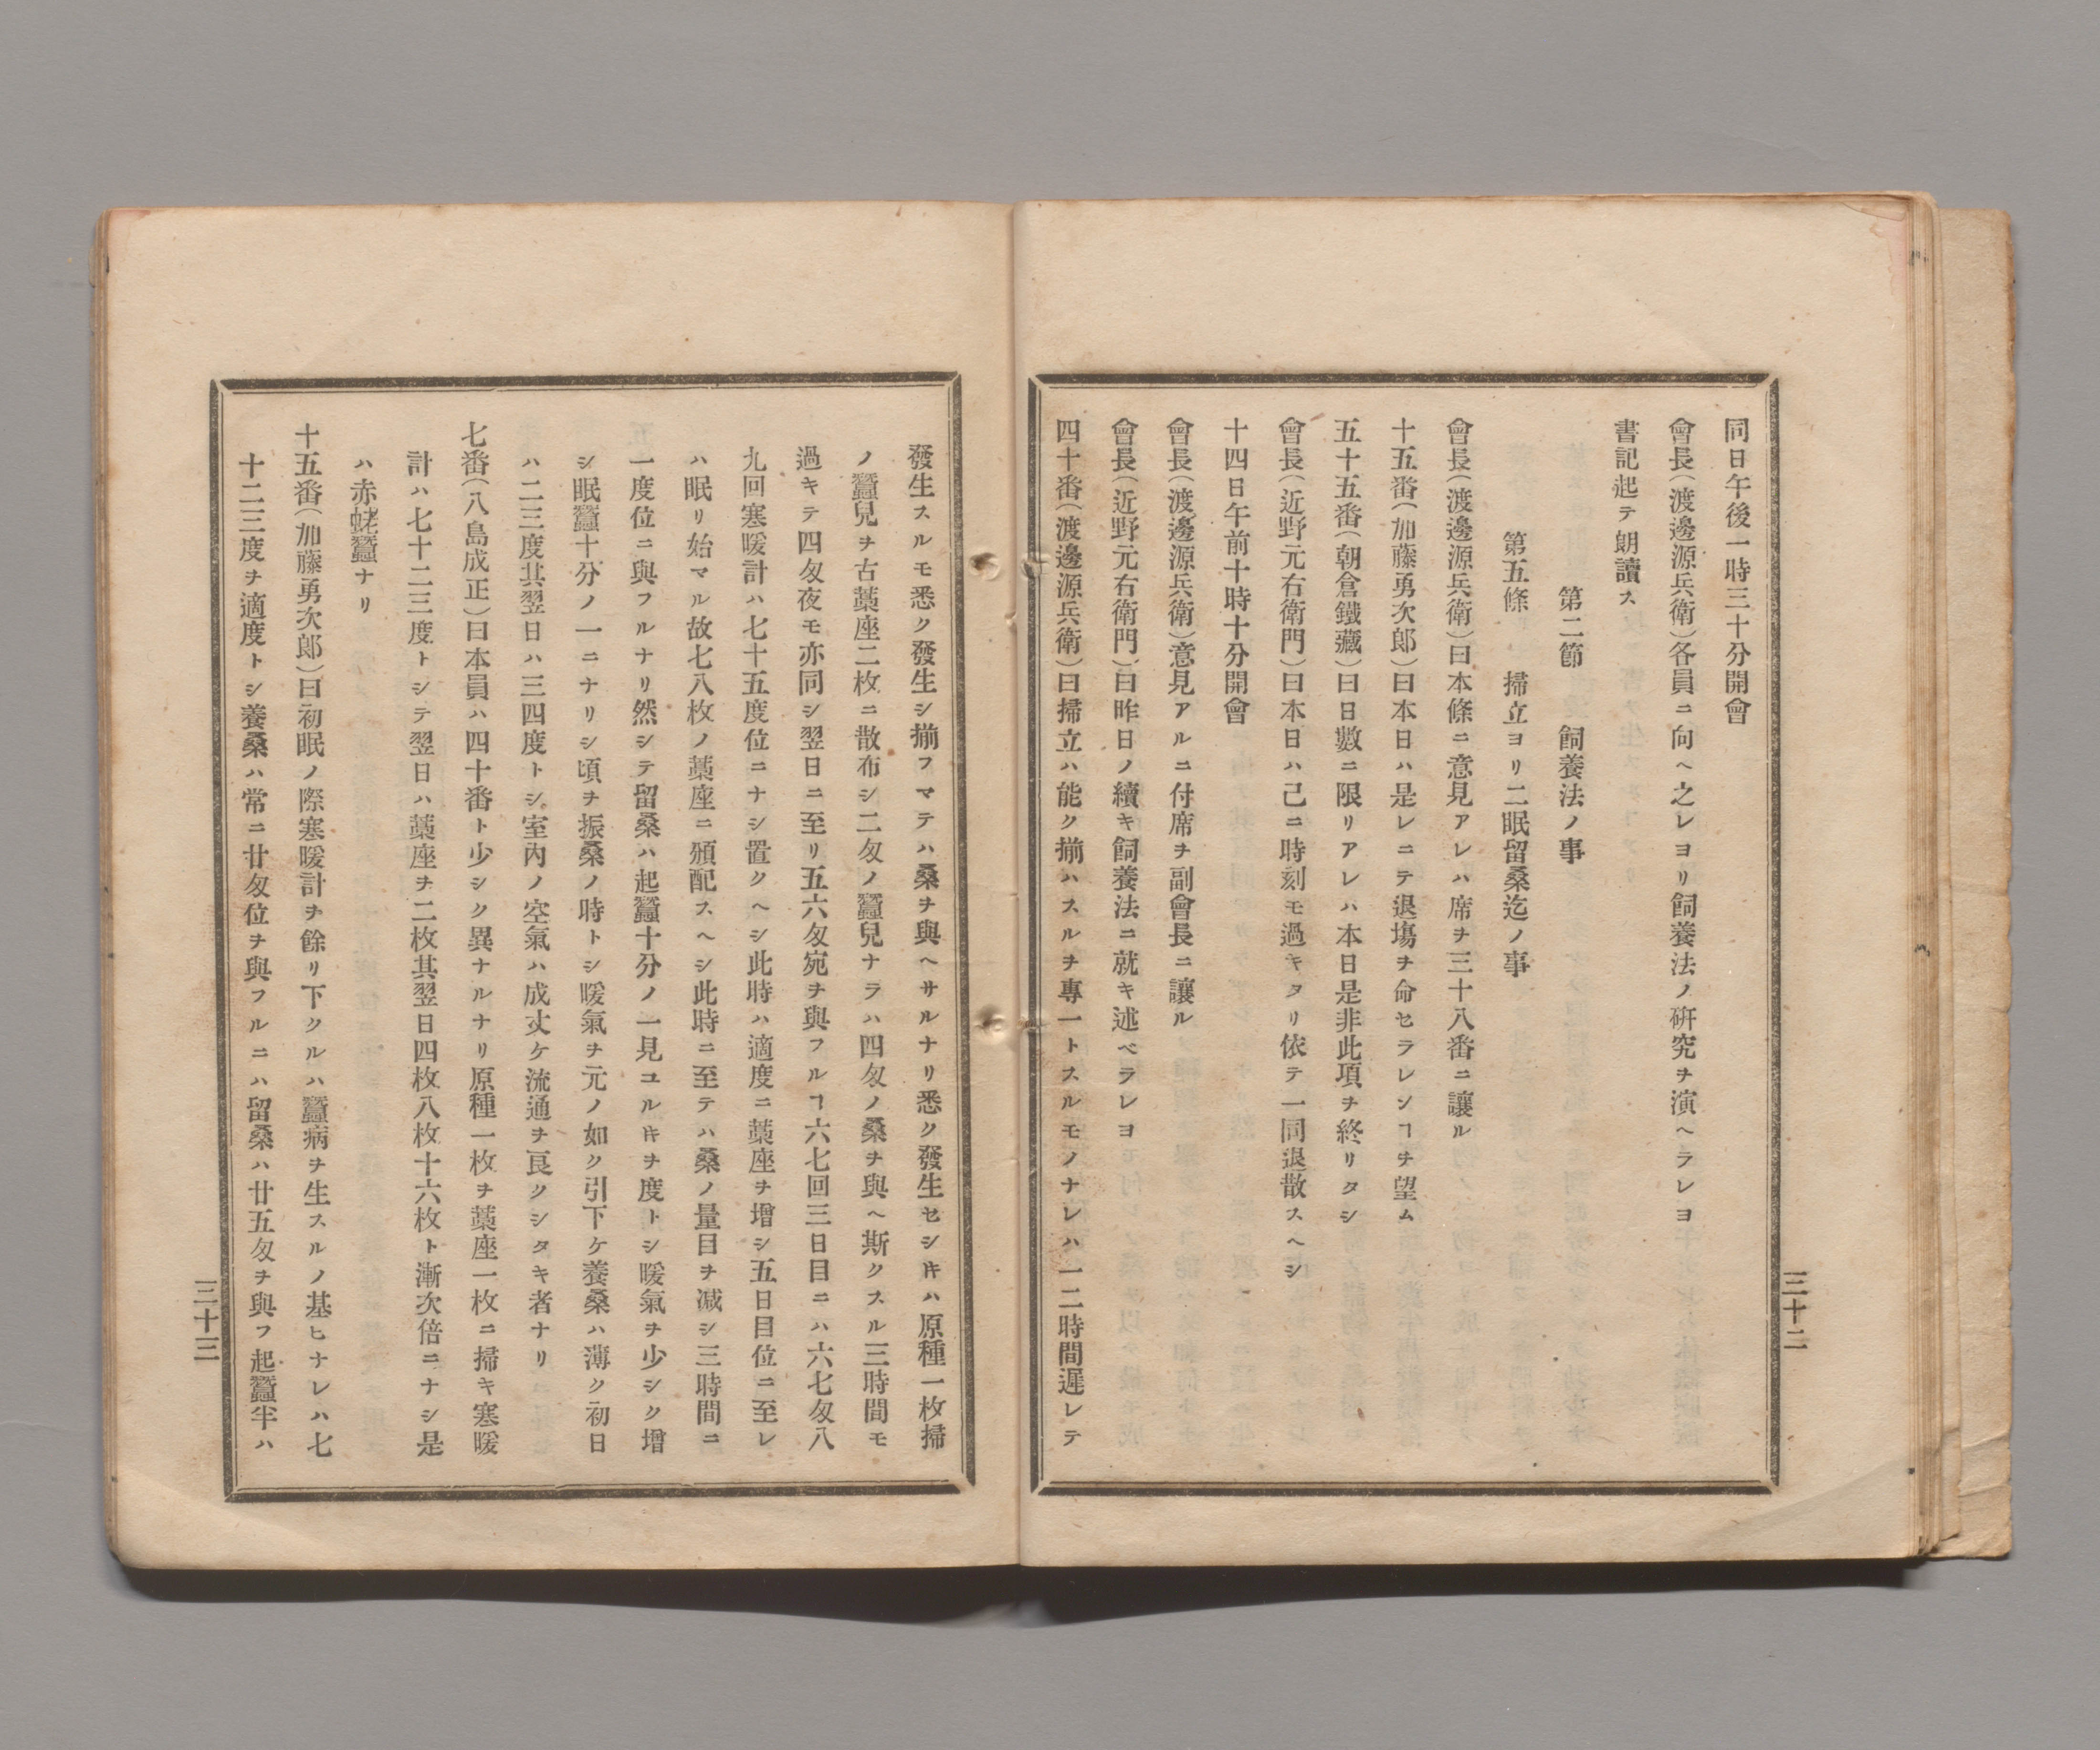 同日午後一時三十分開會
會長(渡邊源兵衛)各員ニ向ヘ之レヨリ飼養法ノ研究ヲ演ヘラレヨ
書記起テ朗讀ス
第二節　飼養法ノ事
第五條　掃立ヨリ二眠留桑迄ノ事
會長(渡邊源兵衛)曰本條ニ意見アレハ席ヲ三十八番ニ讓ル
十五番(加藤勇次郎)曰本日ハ是レニテ退塲ヲ命セラレンヿヲ望ム
五十五番(朝倉鐵藏)曰日數ニ限リアレハ本日是非此項ヲ終リタシ
會長(近野元右衛門)曰本日ハ己ニ時刻モ過キタリ依テ一同退散スヘシ
十四日午前十時十分開會
會長(渡邊源兵衛)意見アルニ付席ヲ副會長ニ讓ル
會長(近野元右衛門)曰昨日ノ續キ飼養法ニ就キ述ベラレヨ
四十番(渡邊源兵衛)曰掃立ハ能ク揃ハスルヲ專一トスルモノナレハ一二時間遲レテ
三十二
發生スルモ悉ク發生シ揃フマテハ桑ヲ與ヘサルナリ悉ク發生セシ𪜈ハ原種一枚掃
ノ蠶兒ヲ古藁座二枚ニ散布シ二匁ノ蠶兒ナラハ四匁ノ桑ヲ與ヘ斯クスル三時間モ
過キテ四匁夜モ亦同シ翌日ニ至リ五六匁宛ヲ與フルヿ六七回三日目ニハ六七匁八
九回寒暖計ハ七十五度位ニナシ置クヘシ此時ハ適度ニ藁座ヲ增シ五日目位ニ至レ
ハ眠リ始マル故七八枚ノ藁座ニ頒配スヘシ此時ニ至テハ桑ノ量目ヲ减シ三時間ニ
一度位ニ與フルナリ然シテ留桑ハ起蠶十分ノ一見ユル𪜈ヲ度トシ暖氣ヲ少シク增
シ眠蠶十分ノ一ニナリシ頃ヲ振桑ノ時トシ暖氣ヲ元ノ如ク引下ケ養桑ハ薄ク初日
ハ二三度其翌日ハ三四度トシ室內ノ空氣ハ成丈ケ流通ヲ良クシタキ者ナリ
七番(八島成正)曰本員ハ四十番ト少シク異ナルナリ原種一枚ヲ藁座一枚ニ掃キ寒暖
計ハ七十二三度トシテ翌日ハ藁座ヲ二枚其翌日四枚八枚十六枚ト漸次倍ニナシ是
ハ赤蛯蠶ナリ
十五番(加藤勇次郎)曰初眠ノ際寒暖計ヲ餘リ下クルハ蠶病ヲ生スルノ基ヒナレハ七
十二三度ヲ適度トシ養桑ハ常ニ廿匁位ヲ與フルニハ留桑ハ廿五匁ヲ與フ起蠶半ハ
三十三